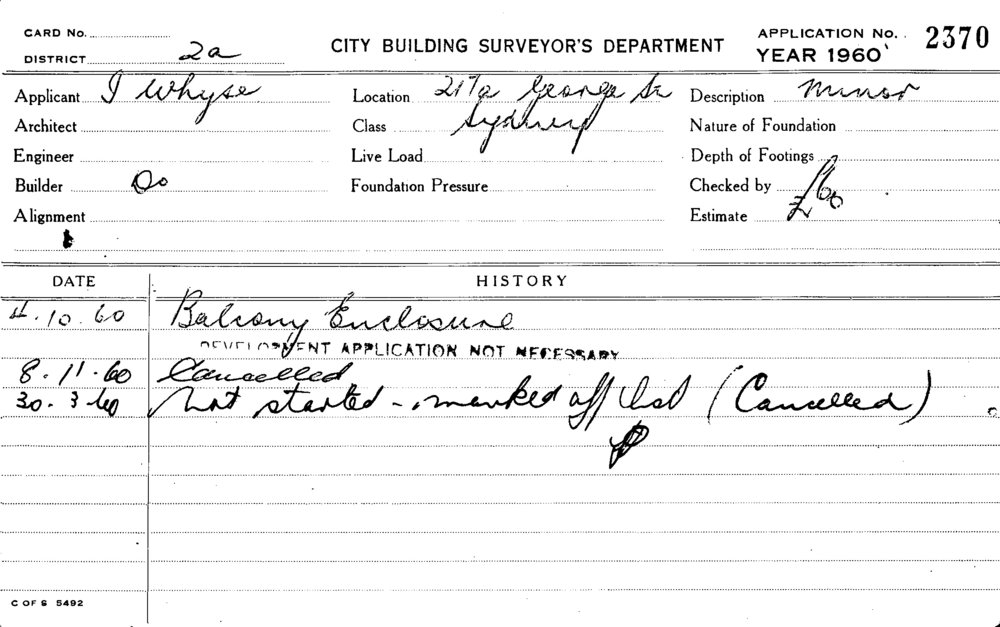 CARD No.
DISTRICT 2a
CITY BUILDING SURVEYOR'S DEPARTMENT
APPLICATION No. 2370
YEAR 1960
Applicant I Whyse Location 217a George St Description Minor
Architect Class Sydney Nature of Foundation
Engineer Live Load Depth of Footings
Builder Do Foundation Pressure Checked by
Alignment Estimate £60
DATE HISTORY
4.10.60 Balcony Enclosure
DEVELOPMENT APPLICATION NOT NECESSARY
8.11.60 Cancelled
30.3.60 Not started - marked off list (Cancelled)
C OF S 5492